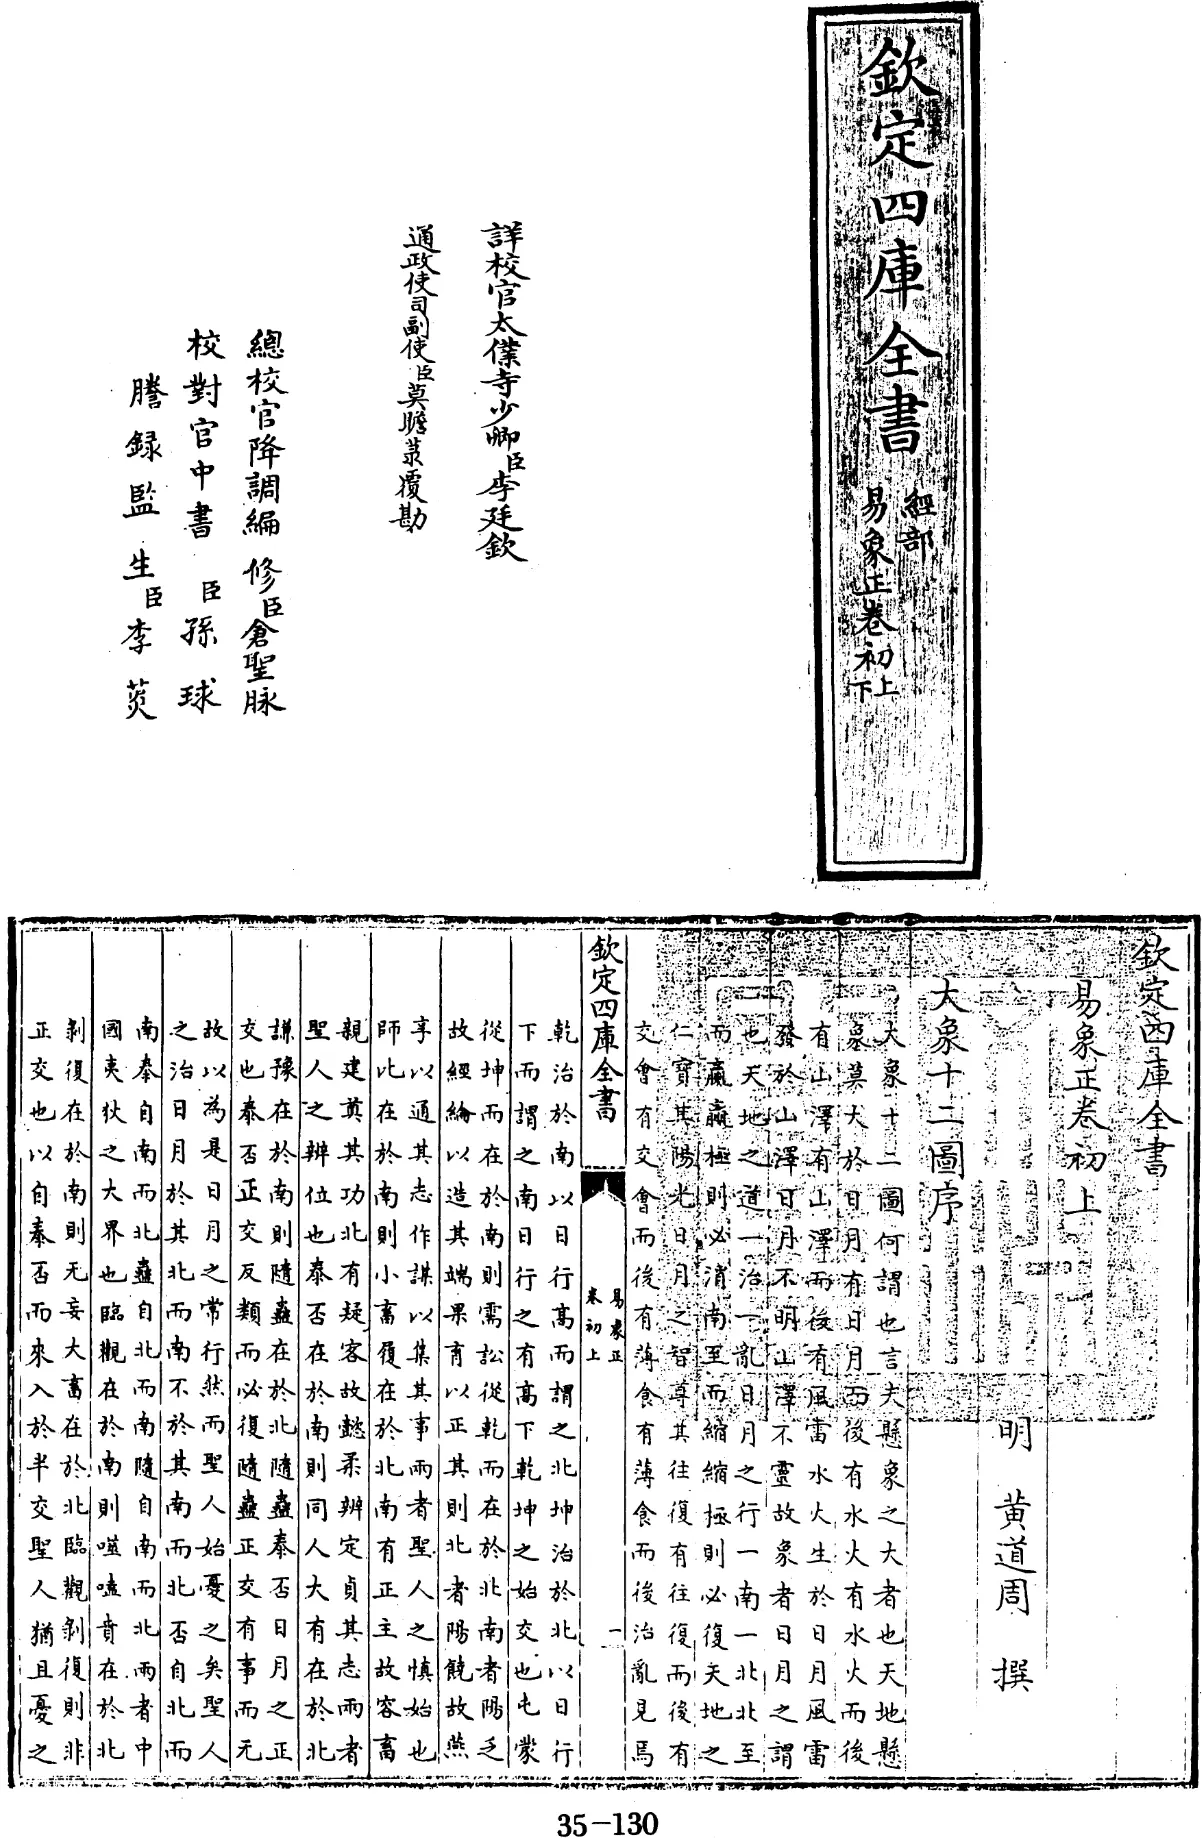 欽定四庫全書
經部
易象正卷初上下
詳校官太僕寺少卿臣李廷欽
通政使司副使臣莫瞻菉覆勘
總校官降調編修臣倉聖脉
校對官中書臣孫球
謄録監生臣李荧
欽定四庫全書
易象正卷初上
明 黄道周 撰
大象十二圖序
大象十二圖何謂也言夫懸象之大者也天地懸
象莫大於日月有日月而後有水火有水火而後
有山澤有山澤而後有風雷水火生於日月風雷
發於山澤日月不明山澤不靈故象者日月之謂
也天地之道一治一亂日月之行一南一北北至
而贏贏極則必消南至而縮縮極則必復天地之
仁寶其陽光日月之智尊其往復有往復而後有
交會有交會而後有薄食有薄食而後治亂見焉
欽定四庫全書
易象正
卷初上
一
乾治於南以日行髙而謂之北坤治於北以日行
下而謂之南日行之有髙下乾坤之始交也屯蒙
從坤而在於南則需訟從乾而在於北南者陽乏
故經綸以造其端果育以正其則北者陽饒故燕
享以通其志作謀以集其事兩者聖人之慎始也
師比在於南則小畜履在於北南有正主故容畜
親建奠其功北有疑客故懿柔辨定貞其志兩者
聖人之辨位也泰否在於南則同人大有在於北
謙豫在於南則隨蠱在於北隨蠱泰否日月之正
交也泰否正交反類而必復隨蠱正交有事而无
故以為是日月之常行然而聖人始憂之矣聖人
之治日月於其北而南不於其南而北否自北而
南泰自南而北蠱自北而南隨自南而北兩者中
國夷狄之大界也臨觀在於南則噬嗑賁在於北
剝復在於南則无妄大畜在於北臨觀剝復則非
正交也以自泰否而來入於半交聖人猶且憂之
35-130